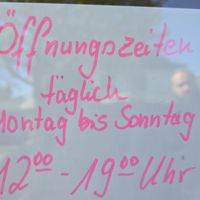 Öffnungszeiten
täglich
Montag bis Sonntag
12⁰⁰ - 19⁰⁰ Uhr